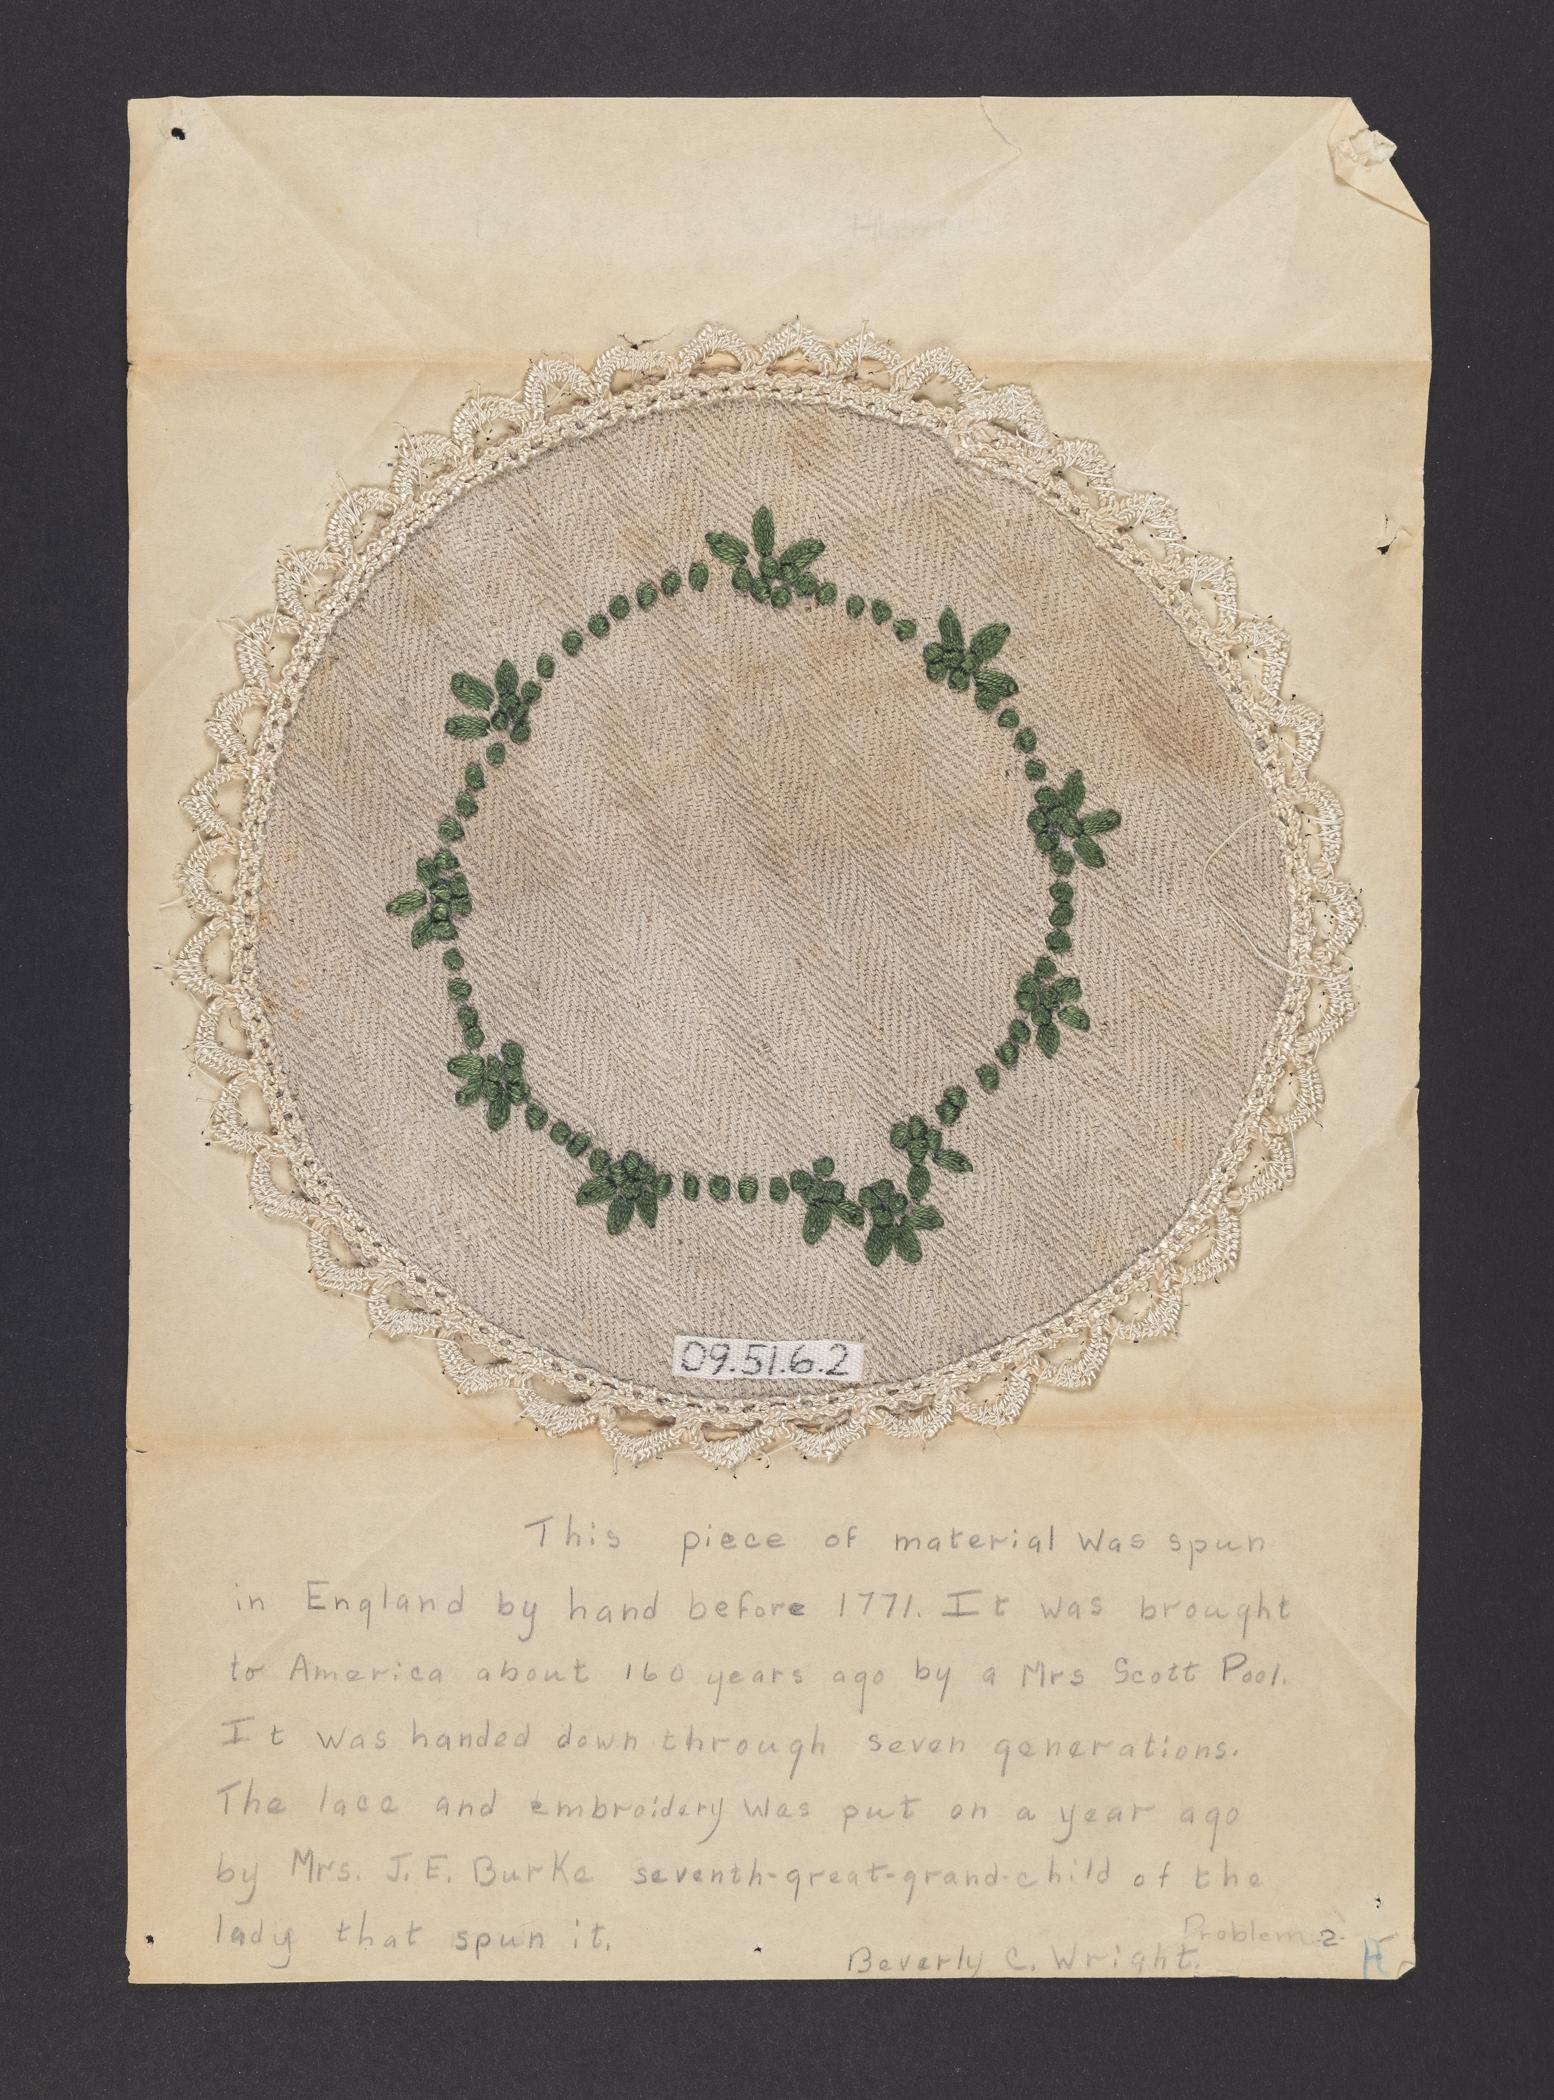 09.51.6.2
This piece of material was spun
in England by hand before 1771. It was brought
to America about 160 years ago by a Mrs Scott Pool.
It was handed down through seven generations.
The lace and embroidery was put on a year ago
by Mrs. J. E. Burke seventh-great-grand-child of the
lady that spun it.
Problem 2
Beverly C. Wright.
H